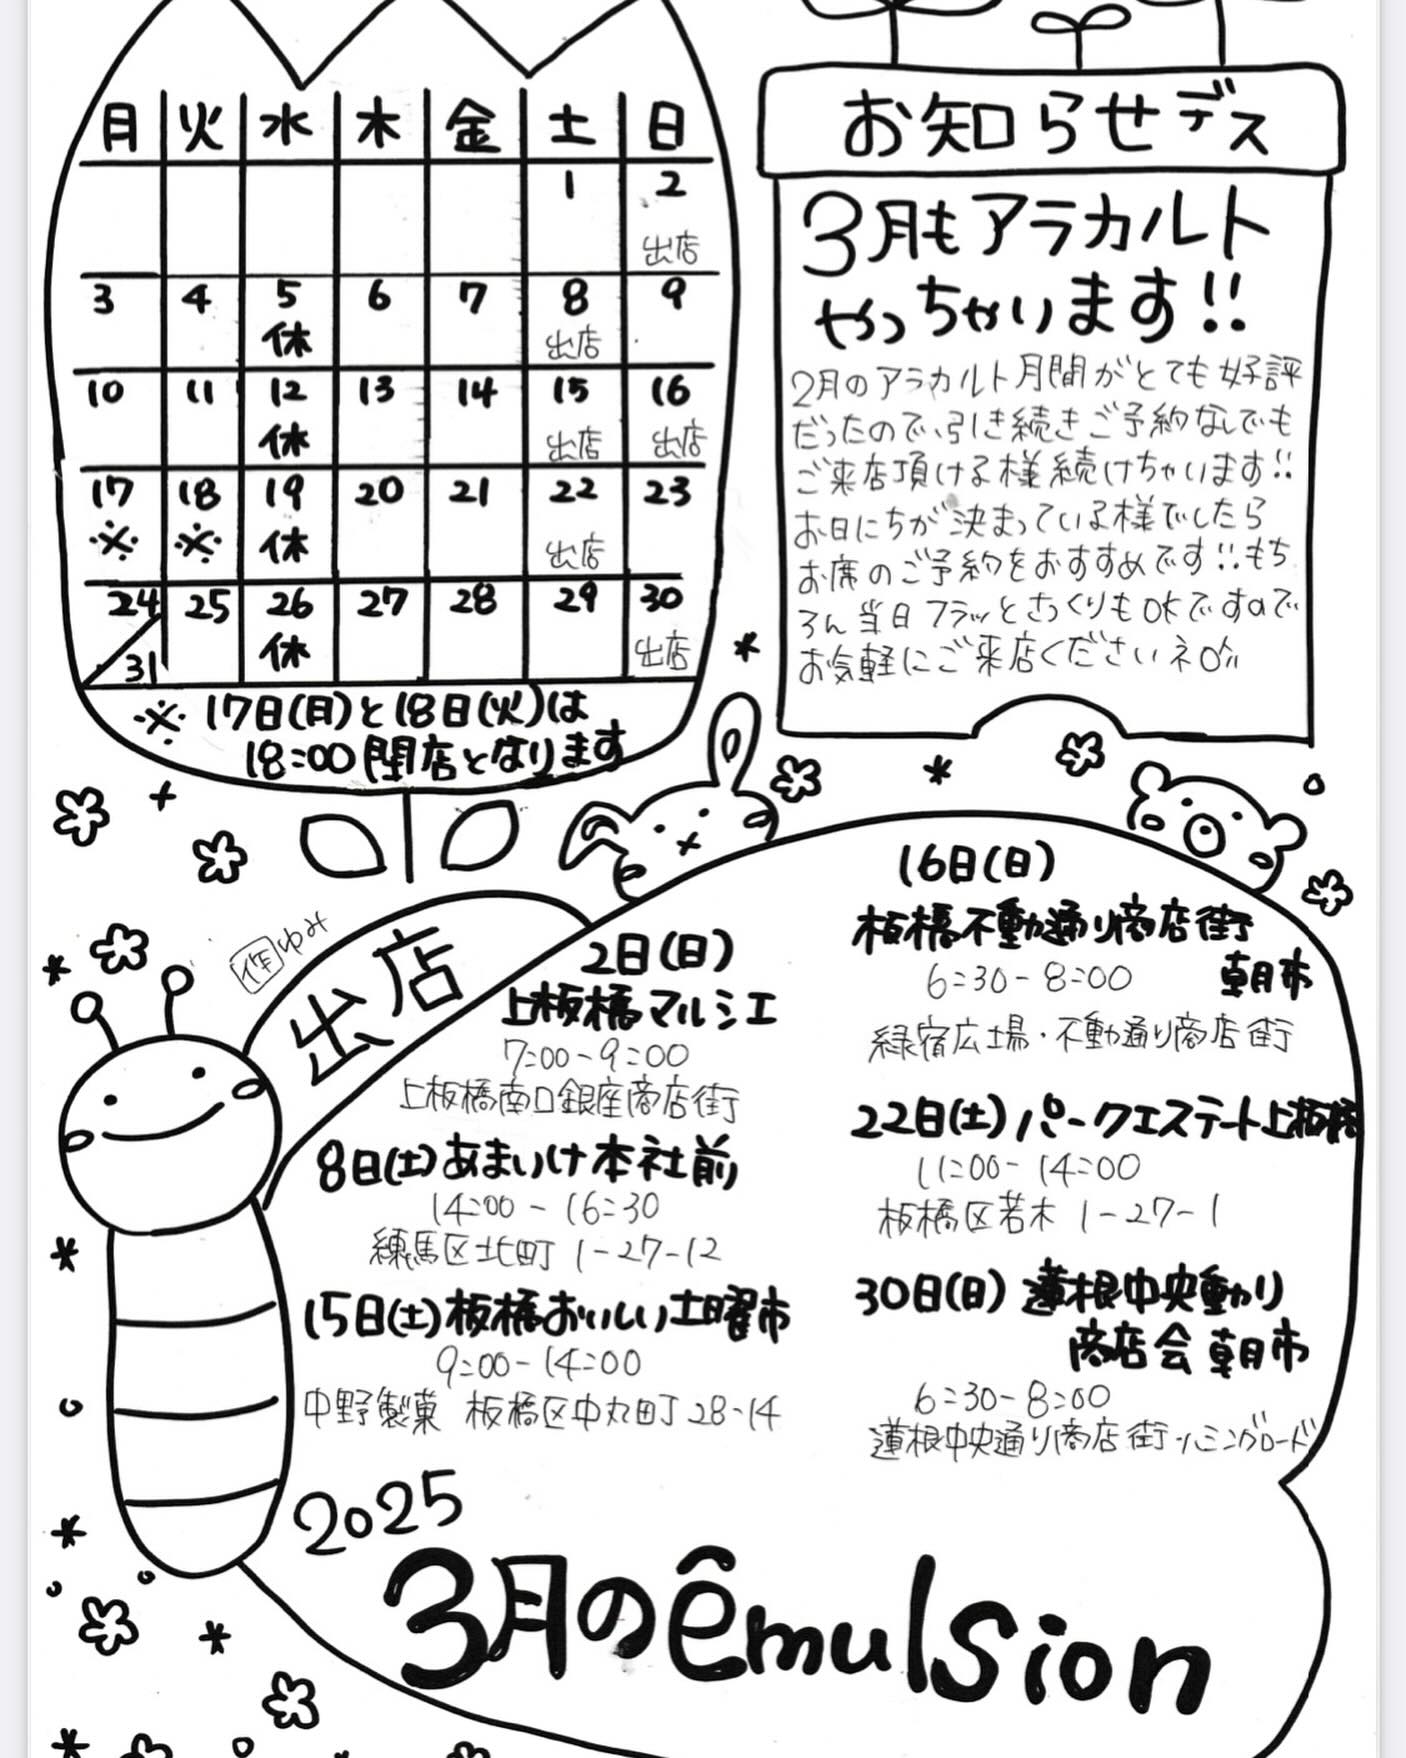 月 火 水 木 金 土 日
1 2
出店
3 4 5 6 7 8 9
休 出店
10 11 12 13 14 15 16
休 出店 出店
17 18 19 20 21 22 23
※ ※ 休 出店
24 25 26 27 28 29 30
31 休 出店
※ 17日(月)と18日(火)は
18:00閉店となります
お知らせデス
3月もアラカルト
やっちゃいます!!
2月のアラカルト月間がとても好評
だったので、引き続きご予約なしでも
ご来店頂ける様続けちゃいます!!
お日にちが決まっている様でしたら
お席のご予約をおすすめです!!もち
ろん当日フラッとさっくりもOKですので
お気軽にご来店くださいネ
作 ゆみ
出店
2日(日)
上板橋マルシェ
7:00-9:00
上板橋南口銀座商店街
8日(土)あまいけ本社前
14:00-16:30
練馬区北町 1-27-12
15日(土)板橋おいしい土曜市
9:00-14:00
中野製菓 板橋区中丸町28-14
16日(日)
板橋不動通り商店街
朝市
6:30-8:00
緑宿広場・不動通り商店街
22日(土)パークエステート上板橋
11:00-14:00
板橋区若木 1-27-1
30日(日)蓮根中央通り
商店会 朝市
6:30-8:00
蓮根中央通り商店街ハミングロード
2025
3月のêmulsion